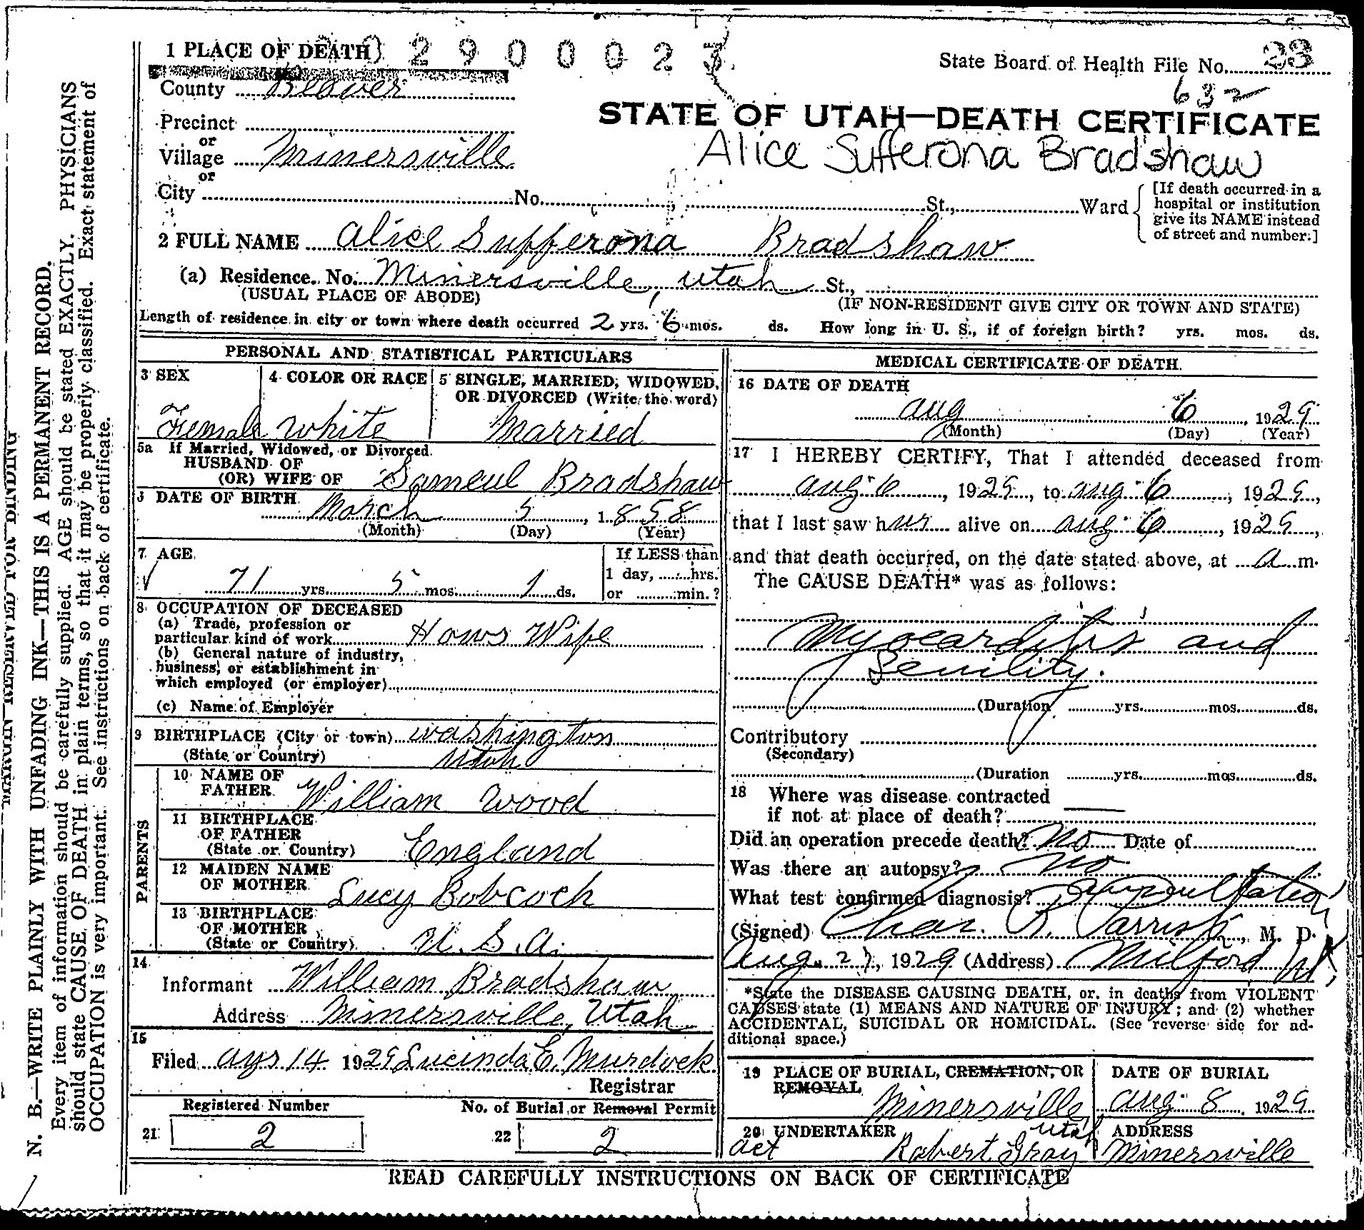 1 PLACE OF DEATH 2 9 0 0 0 2 3
State Board of Health File No. 23
County Beaver
632
STATE OF UTAH—DEATH CERTIFICATE
Precinct
or
Village Minersville
Alice Sufferona Bradshaw
or
City No. St., Ward
[If death occurred in a
hospital or institution
give its NAME instead
of street and number.]
2 FULL NAME Alice Sufferona Bradshaw
(a) Residence. No. Minersville, Utah St.,
(USUAL PLACE OF ABODE) (IF NON-RESIDENT GIVE CITY OR TOWN AND STATE)
Length of residence in city or town where death occurred 2 yrs. 6 mos. ds. How long in U. S., if of foreign birth? yrs. mos. ds.
PERSONAL AND STATISTICAL PARTICULARS
3 SEX
Female
4 COLOR OR RACE
White
5 SINGLE, MARRIED, WIDOWED,
OR DIVORCED (Write the word)
Married
5a If Married, Widowed, or Divorced
HUSBAND OF
(OR) WIFE OF Sameul Bradshaw
DATE OF BIRTH March 5, 1858
(Month) (Day) (Year)
7 AGE
71 yrs. 5 mos. 1 ds.
If LESS than
1 day, hrs.
or min.?
8 OCCUPATION OF DECEASED
(a) Trade, profession or
particular kind of work Hows Wife
(b) General nature of industry,
business, or establishment in
which employed (or employer)
(c) Name of Employer
9 BIRTHPLACE (City or town) Washington
(State or Country) Utah
PARENTS
10 NAME OF
FATHER William Wood
11 BIRTHPLACE
OF FATHER
(State or Country) England
12 MAIDEN NAME
OF MOTHER Lucy Bobcock
13 BIRTHPLACE
OF MOTHER
(State or Country) U. S. A.
14
Informant William Bradshaw
Address Minersville, Utah
15
Filed Aug 14 1929 Lucinda E. Murdock
Registrar
Registered Number
21 2
No. of Burial or Removal Permit
22 2
MEDICAL CERTIFICATE OF DEATH
16 DATE OF DEATH
Aug 6, 1929
(Month) (Day) (Year)
17 I HEREBY CERTIFY, That I attended deceased from
Aug 6, 1929, to Aug 6, 1929,
that I last saw her alive on Aug 6, 1929,
and that death occurred, on the date stated above, at a m.
The CAUSE DEATH* was as follows:
Myocarditis and
Senility.
(Duration yrs. mos. ds.
Contributory
(Secondary)
(Duration yrs. mos. ds.
18 Where was disease contracted
if not at place of death?
Did an operation precede death? no Date of
Was there an autopsy? no
What test confirmed diagnosis?
(Signed) Chas. R. Parrish, M. D.
Aug. 27, 1929 (Address) Milford Ut.
*State the DISEASE CAUSING DEATH, or, in deaths from VIOLENT
CAUSES state (1) MEANS AND NATURE OF INJURY; and (2) whether
ACCIDENTAL, SUICIDAL OR HOMICIDAL. (See reverse side for ad-
ditional space.)
19 PLACE OF BURIAL, CREMATION, OR
REMOVAL
Minersville
Utah
DATE OF BURIAL
Aug 8, 1929
20 UNDERTAKER
act Robert Gray
ADDRESS
Minersville
READ CAREFULLY INSTRUCTIONS ON BACK OF CERTIFICATE
MARGIN RESERVED FOR BINDING
N. B.—WRITE PLAINLY WITH UNFADING INK—THIS IS A PERMANENT RECORD.
Every item of information should be carefully supplied. AGE should be stated EXACTLY. PHYSICIANS
should state CAUSE OF DEATH in plain terms, so that it may be properly classified. Exact statement of
OCCUPATION is very important. See instructions on back of certificate.